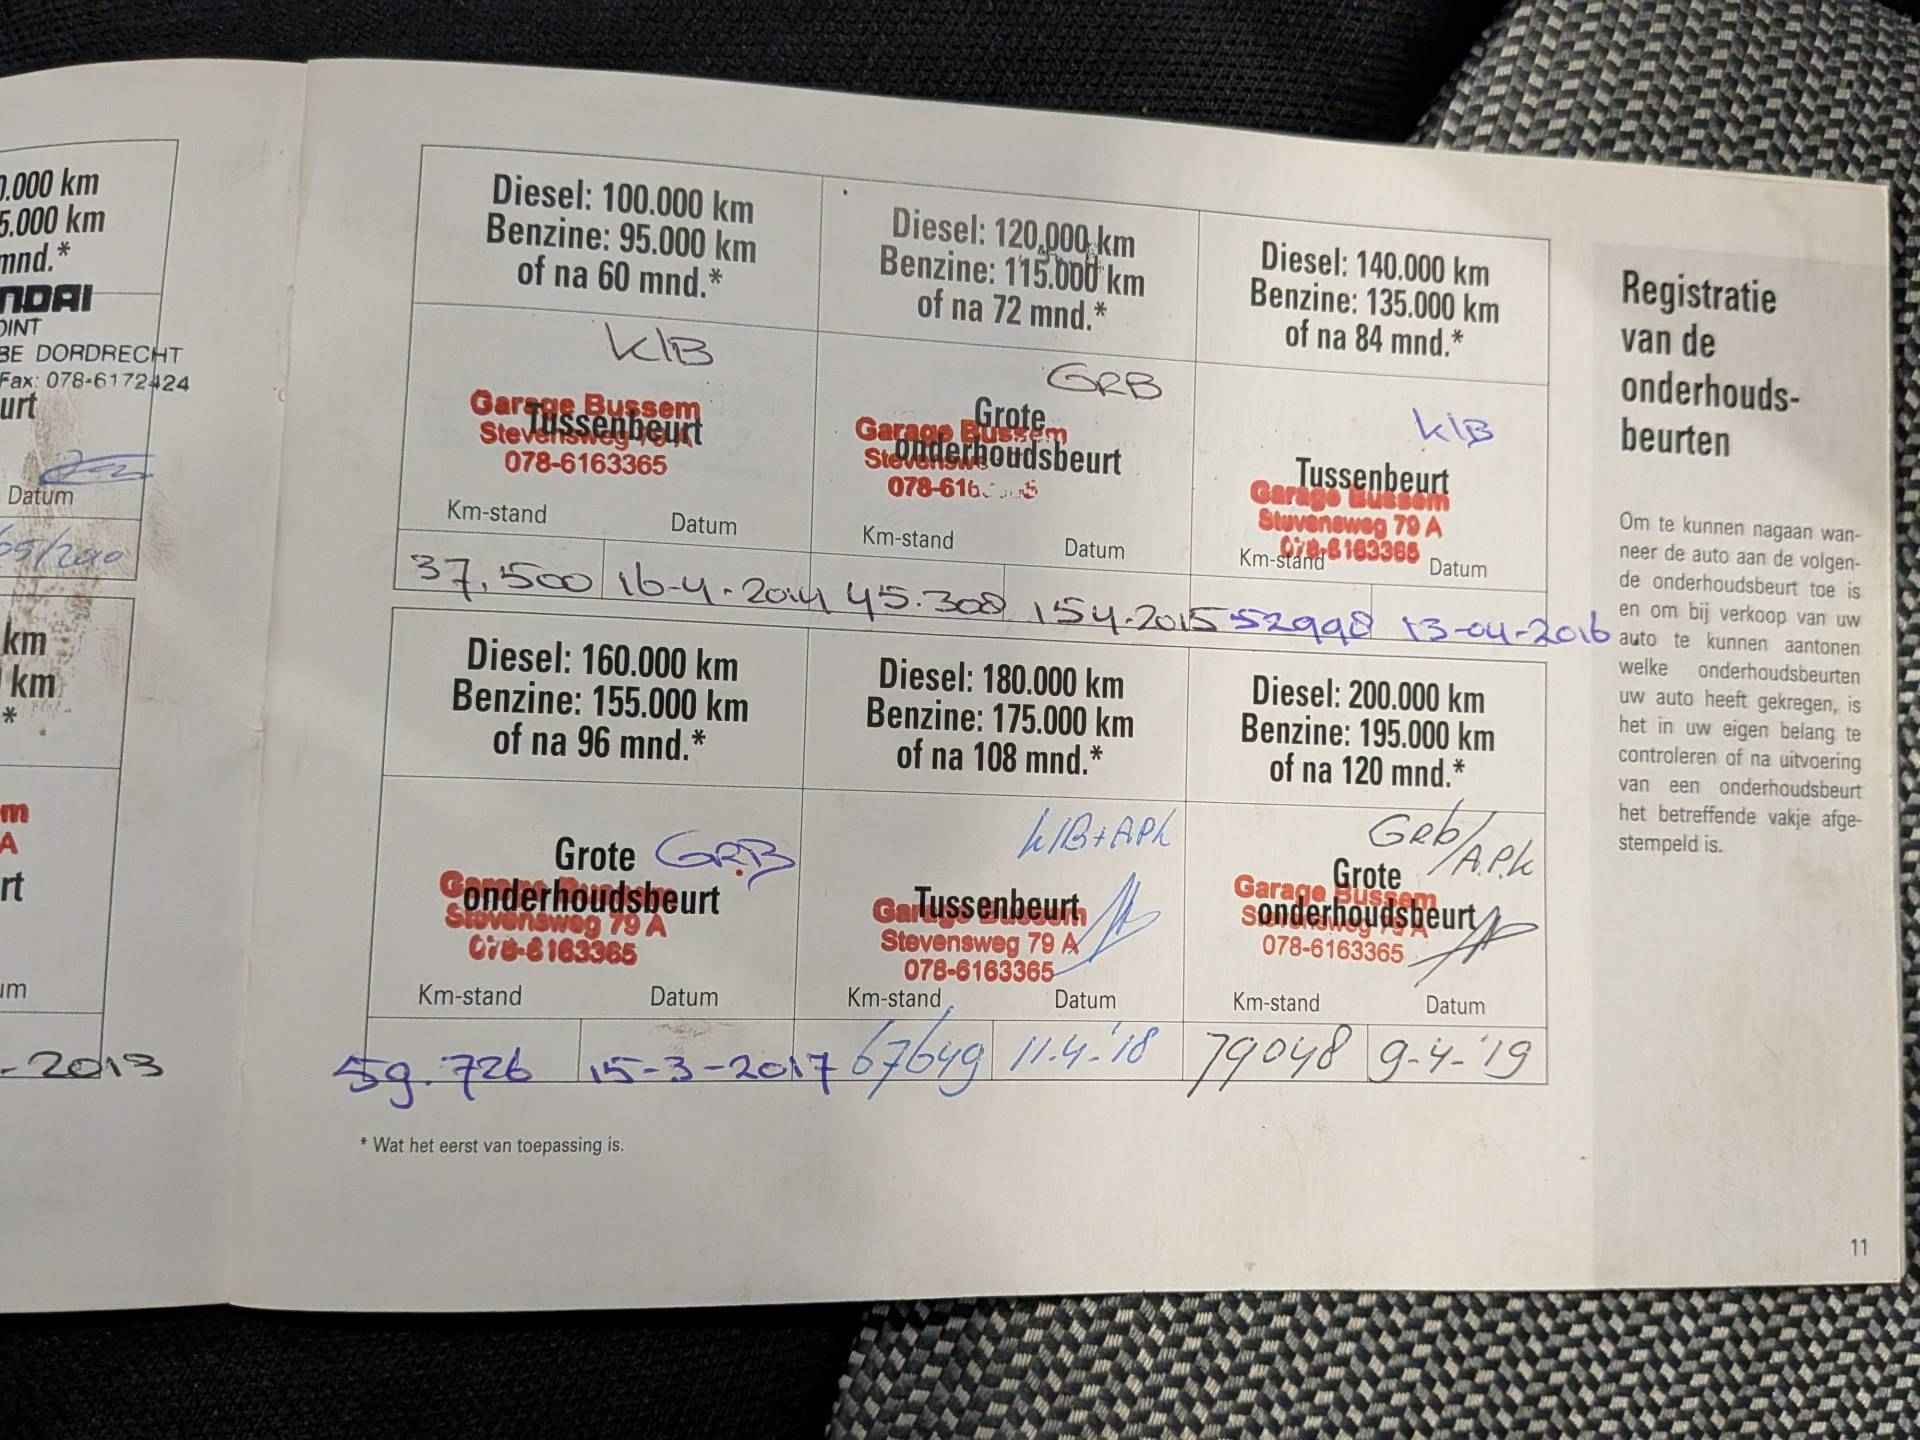 0.000 km
5.000 km
mnd.*
NDAI
OINT
BE DORDRECHT
Fax: 078-6172424
urt
Datum
km
km
*
m
A
rt
um
-2013
Diesel: 100.000 km
Benzine: 95.000 km
of na 60 mnd.*
KlB
Garage Bussem
Tussenbeurt
Stevensweg 79 A
078-6163365
Km-stand Datum
37.500 16-4-2014
Diesel: 120.000 km
Benzine: 115.000 km
of na 72 mnd.*
GRB
Grote
Garage Bussem
onderhoudsbeurt
078-616
Km-stand Datum
45.308 15-4-2015
Diesel: 140.000 km
Benzine: 135.000 km
of na 84 mnd.*
KlB
Tussenbeurt
Garage Bussem
Stevensweg 79 A
078-6163365
Km-stand Datum
52998 13-04-2016
Diesel: 160.000 km
Benzine: 155.000 km
of na 96 mnd.*
Grote GRB
Garage Bussem
onderhoudsbeurt
Stevensweg 79 A
078-6163365
Km-stand Datum
59.726 15-3-2017
Diesel: 180.000 km
Benzine: 175.000 km
of na 108 mnd.*
klB+APk
Tussenbeurt
Garage Bussem
Stevensweg 79 A
078-6163365
Km-stand Datum
67649 11-4-'18
Diesel: 200.000 km
Benzine: 195.000 km
of na 120 mnd.*
Grb/A.P.k
Grote
Garage Bussem
onderhoudsbeurt
078-6163365
Km-stand Datum
79048 9-4-'19
* Wat het eerst van toepassing is.
Registratie
van de
onderhouds-
beurten
Om te kunnen nagaan wan-
neer de auto aan de volgen-
de onderhoudsbeurt toe is
en om bij verkoop van uw
auto te kunnen aantonen
welke onderhoudsbeurten
uw auto heeft gekregen, is
het in uw eigen belang te
controleren of na uitvoering
van een onderhoudsbeurt
het betreffende vakje afge-
stempeld is.
11